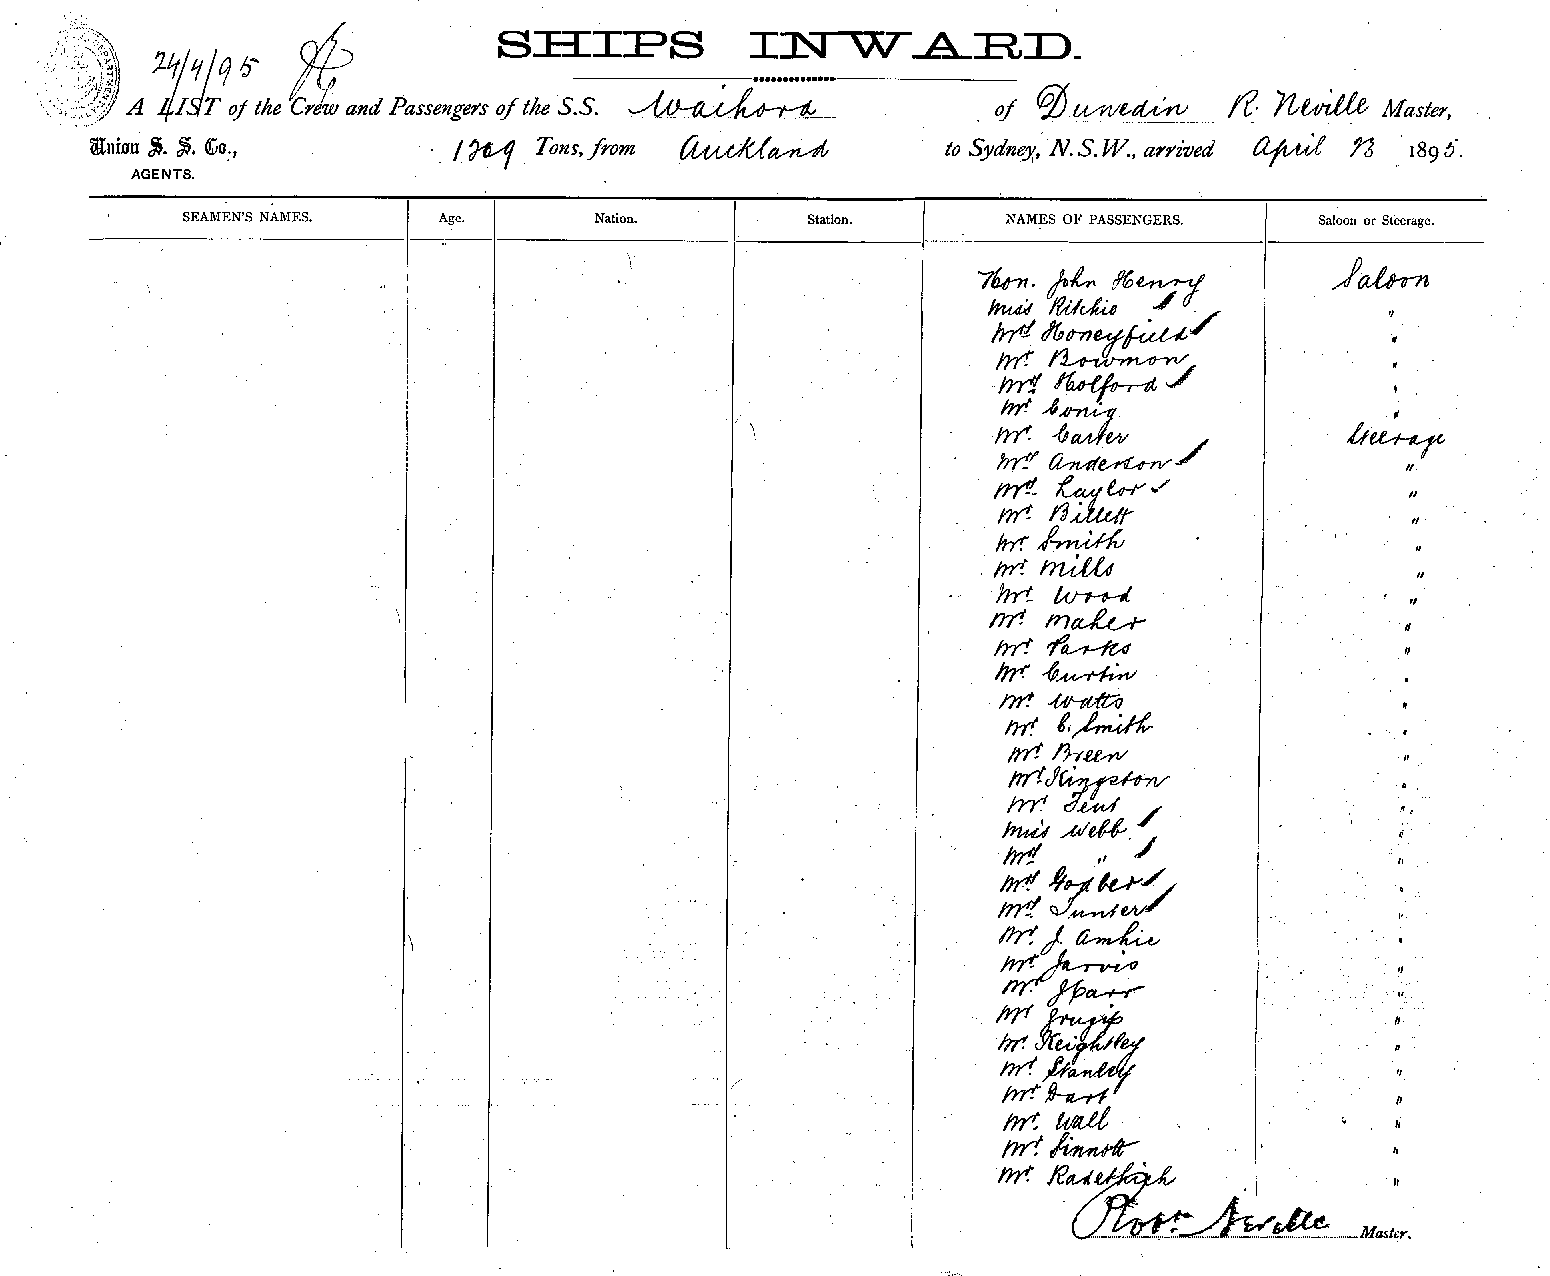 SHIPS INWARD.
24/4/95
A LIST of the Crew and Passengers of the S.S. Waihora of Dunedin R. Neville Master,
Union S. S. Co., 1269 Tons, from Auckland to Sydney, N.S.W., arrived April 23 1895.
AGENTS.
SEAMEN'S NAMES. Age. Nation. Station. NAMES OF PASSENGERS. Saloon or Steerage.
Hon. John Henry Saloon
Miss Ritchie "
Mrs Honeyfield "
Mr. Bowmon "
Mrs Holford "
Mr Conig "
Mr. Carter Steerage
Mrs Anderson "
Mrs Taylor "
Mr. Billett "
Mr. Smith "
Mr. Mills "
Mr. Wood "
Mr. Maher "
Mr. Parks "
Mr. Curtin "
Mr. Watts "
Mr. C. Smith "
Mr. Breen "
Mr. Kingston "
Mr. Tent "
Miss Webb "
Mrs " "
Mrs "
Mrs "
Mr. J. "
Mr. Jarvis "
Mr "
Mr "
Mr. Keightley "
Mr. Stanley "
Mr. Dart "
Mr. Wall "
Mr. Sinnott "
Mr. "
Robt. Neville Master.